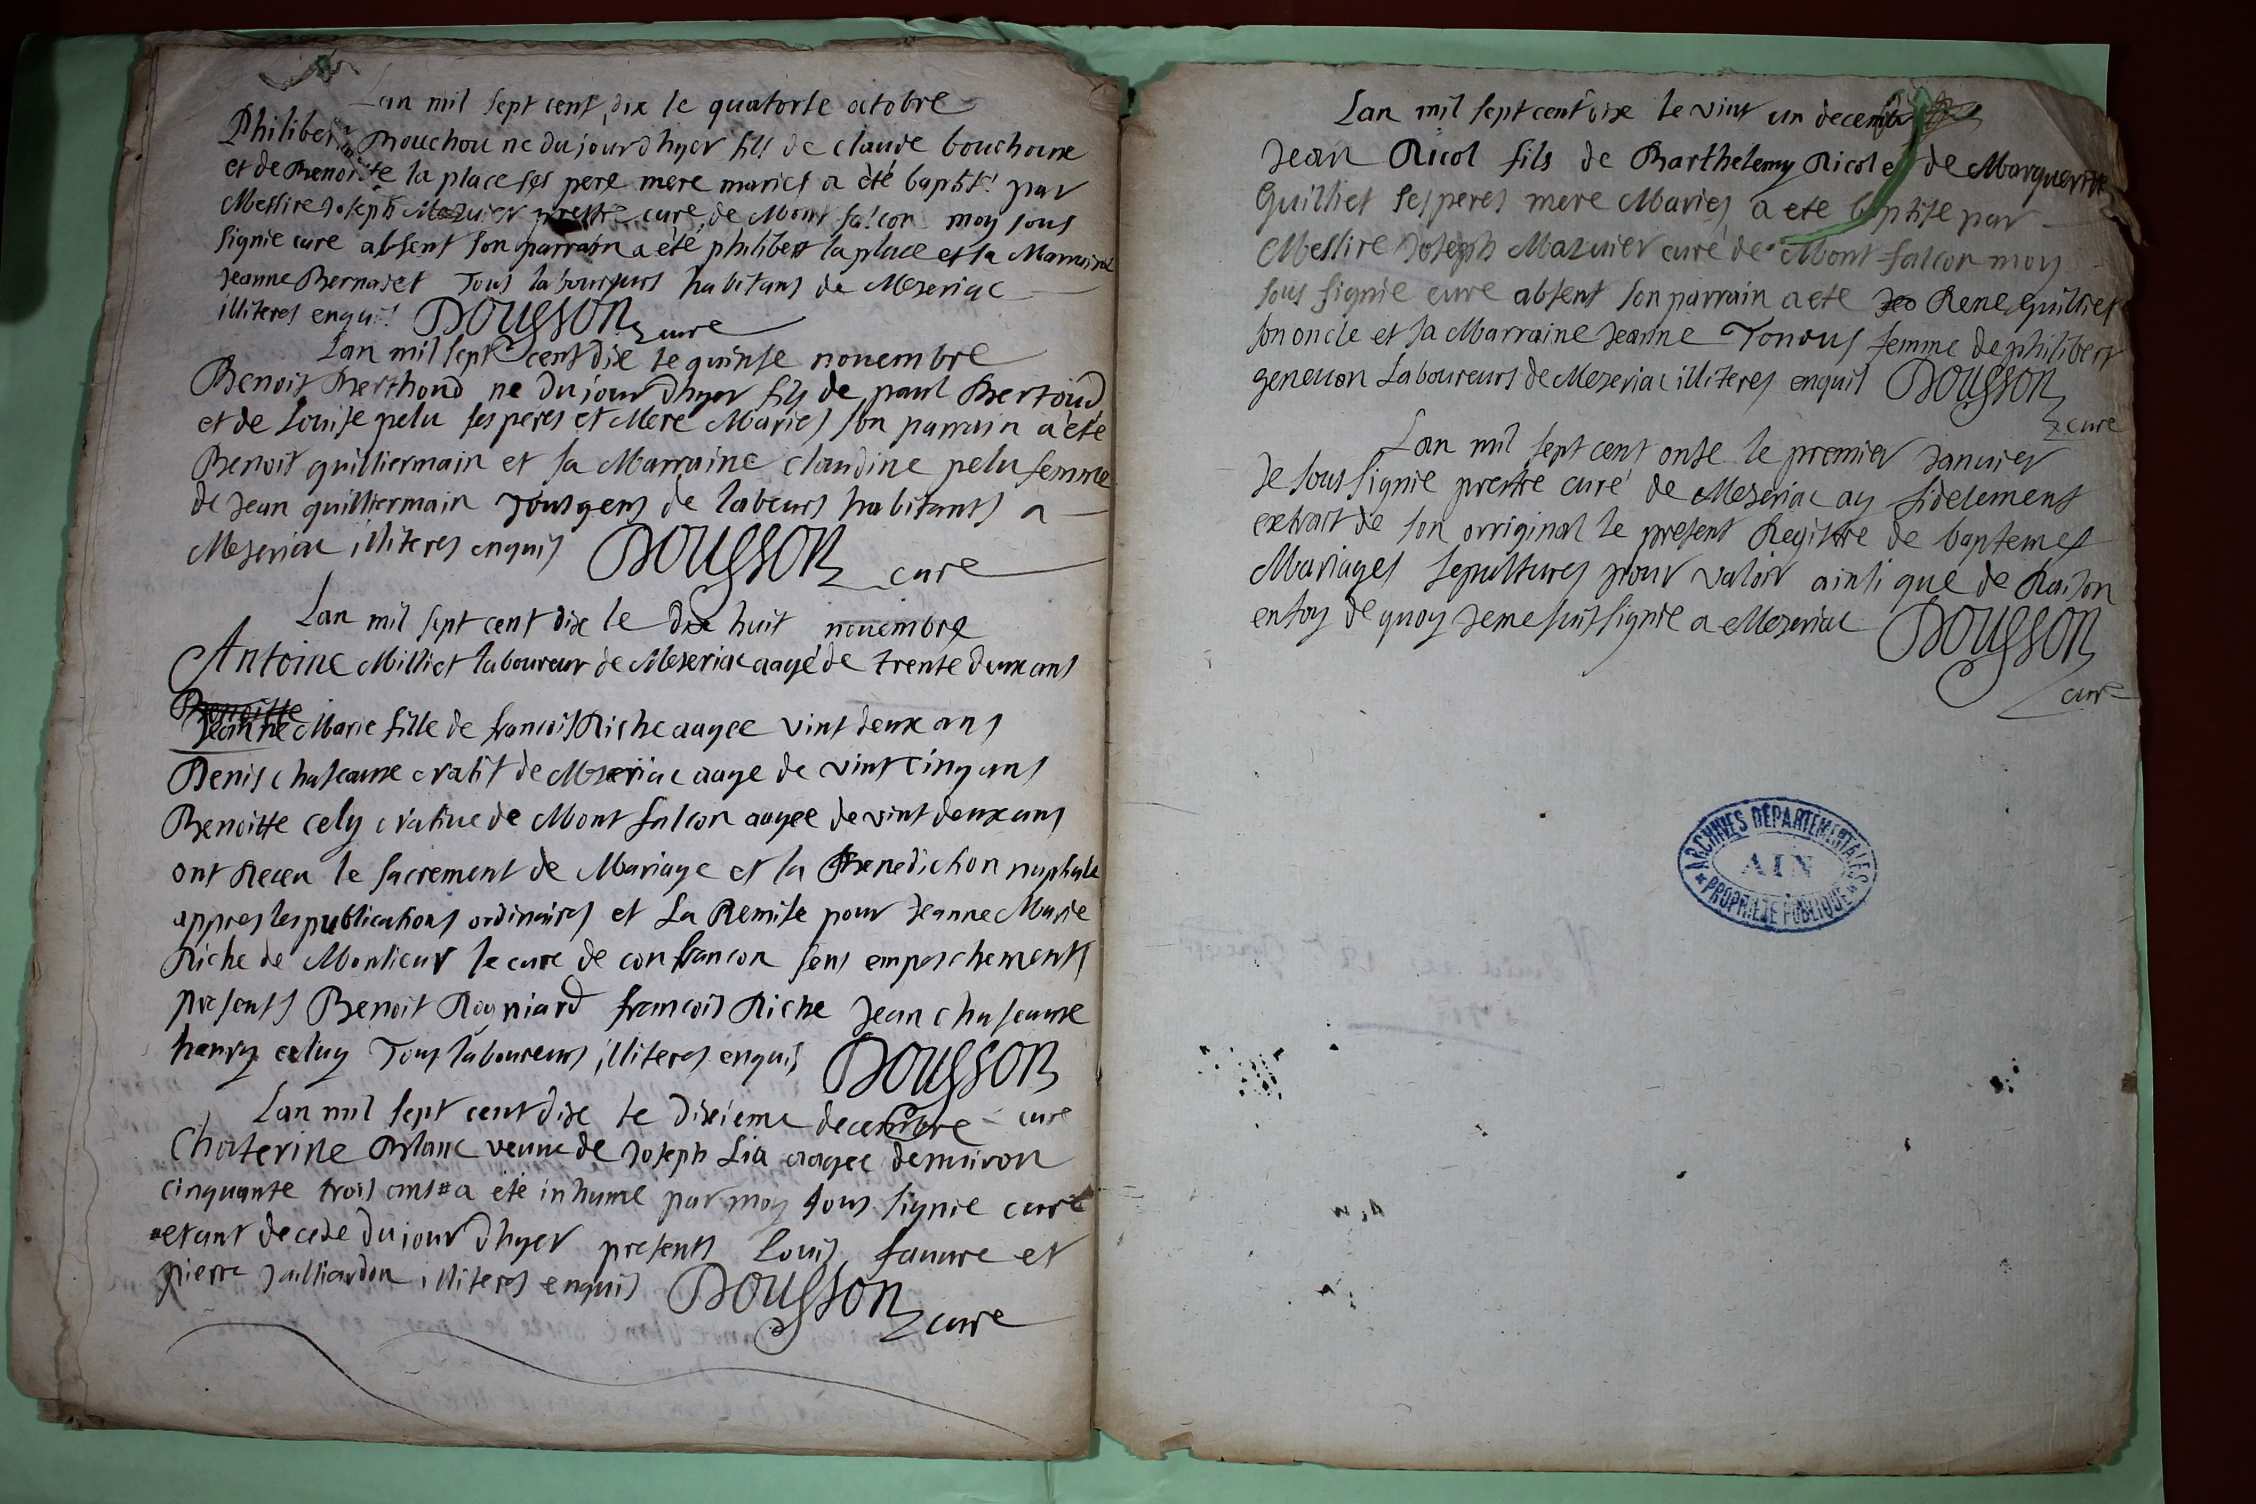 Lan mil sept cent dix le quatorse octobre
Philibert Bouchou ne du jour dhyer fils de claude bouchoux
et de Benoitte la place ses pere mere maries a été baptisé par
Messire Joseph Mazuier prestre curé de Mont falcon moy sous
signie cure absent son parrain a été philibert la place et sa Marraine
Jeanne Bernadet Tous laboureurs habitans de Meseriac
illiteres enquis Dousson cure
Lan mil sept cent dix le quinse novembre
Benoit Berthoud ne du jour dhyer fils de paul Bertoud
et de Louise pelu ses peres et Mere Maries son parrain a été
Benoit guilliermain et sa Marraine claudine pelu femme
de Jean guilliermain Tous gens de labeurs habitants a
Meseriac illiteres enquis Dousson cure
Lan mil sept cent dix le dix huit novembre
Antoine Milliet laboureur de Meseriac aagé de trente deux ans
Benoitte
Jeanne Marie fille de francois Riche aagee vint deux ans
Denis chaseaux cratif de Meseriac aage de vint cinq ans
Benoitte cely crative de Mont falcon aagee de vint deux ans
ont Receu le sacrement de Mariage et la Benediction nuptiale
appres les publications ordinaires et La Remise pour Jeanne Marie
Riche de Monsieur le cure de confrancon sens empeschements
presents Benoit Rogniard francois Riche Jean chaseaux
henry celuy Tous laboureurs illiteres enquis Dousson
cure
Lan mil sept cent dix le dixieme decembre
Chaterine Blanc veuve de Joseph Lia aagee denviron
cinquante trois ans a été inhume par moy sous signie curé
etant decede du jour dhyer presents Louis fauvre et
pierre Jailliardon illiteres enquis Dousson cure
Lan mil sept cent dix le vint un decembre
Jean Ricol fils de Barthelemy Ricol et de Marguerite
Guilliet ses peres mere Maries a ete baptise par
Messire Joseph Mazuier curé de Mont falcon moy
sous signie cure absent son parrain a ete Rene guilliet
son oncle et sa Marraine Jeanne Tondus femme de philibert
genevon Laboureurs de Meseriac illiteres enquis Dousson
cure
Lan mil sept cent onse le premier Janvier
Je sous signie prestre curé de Meseriac ay fidelement
extrait de son orriginal le present Registre de baptemes
Mariages sepultures pour valoir ainsi que de Raison
en foy de quoy Je me suis signie a Meseriac Dousson
cure
ARCHIVES DÉPARTEMENTALES
AIN
PROPRIÉTÉ PUBLIQUE